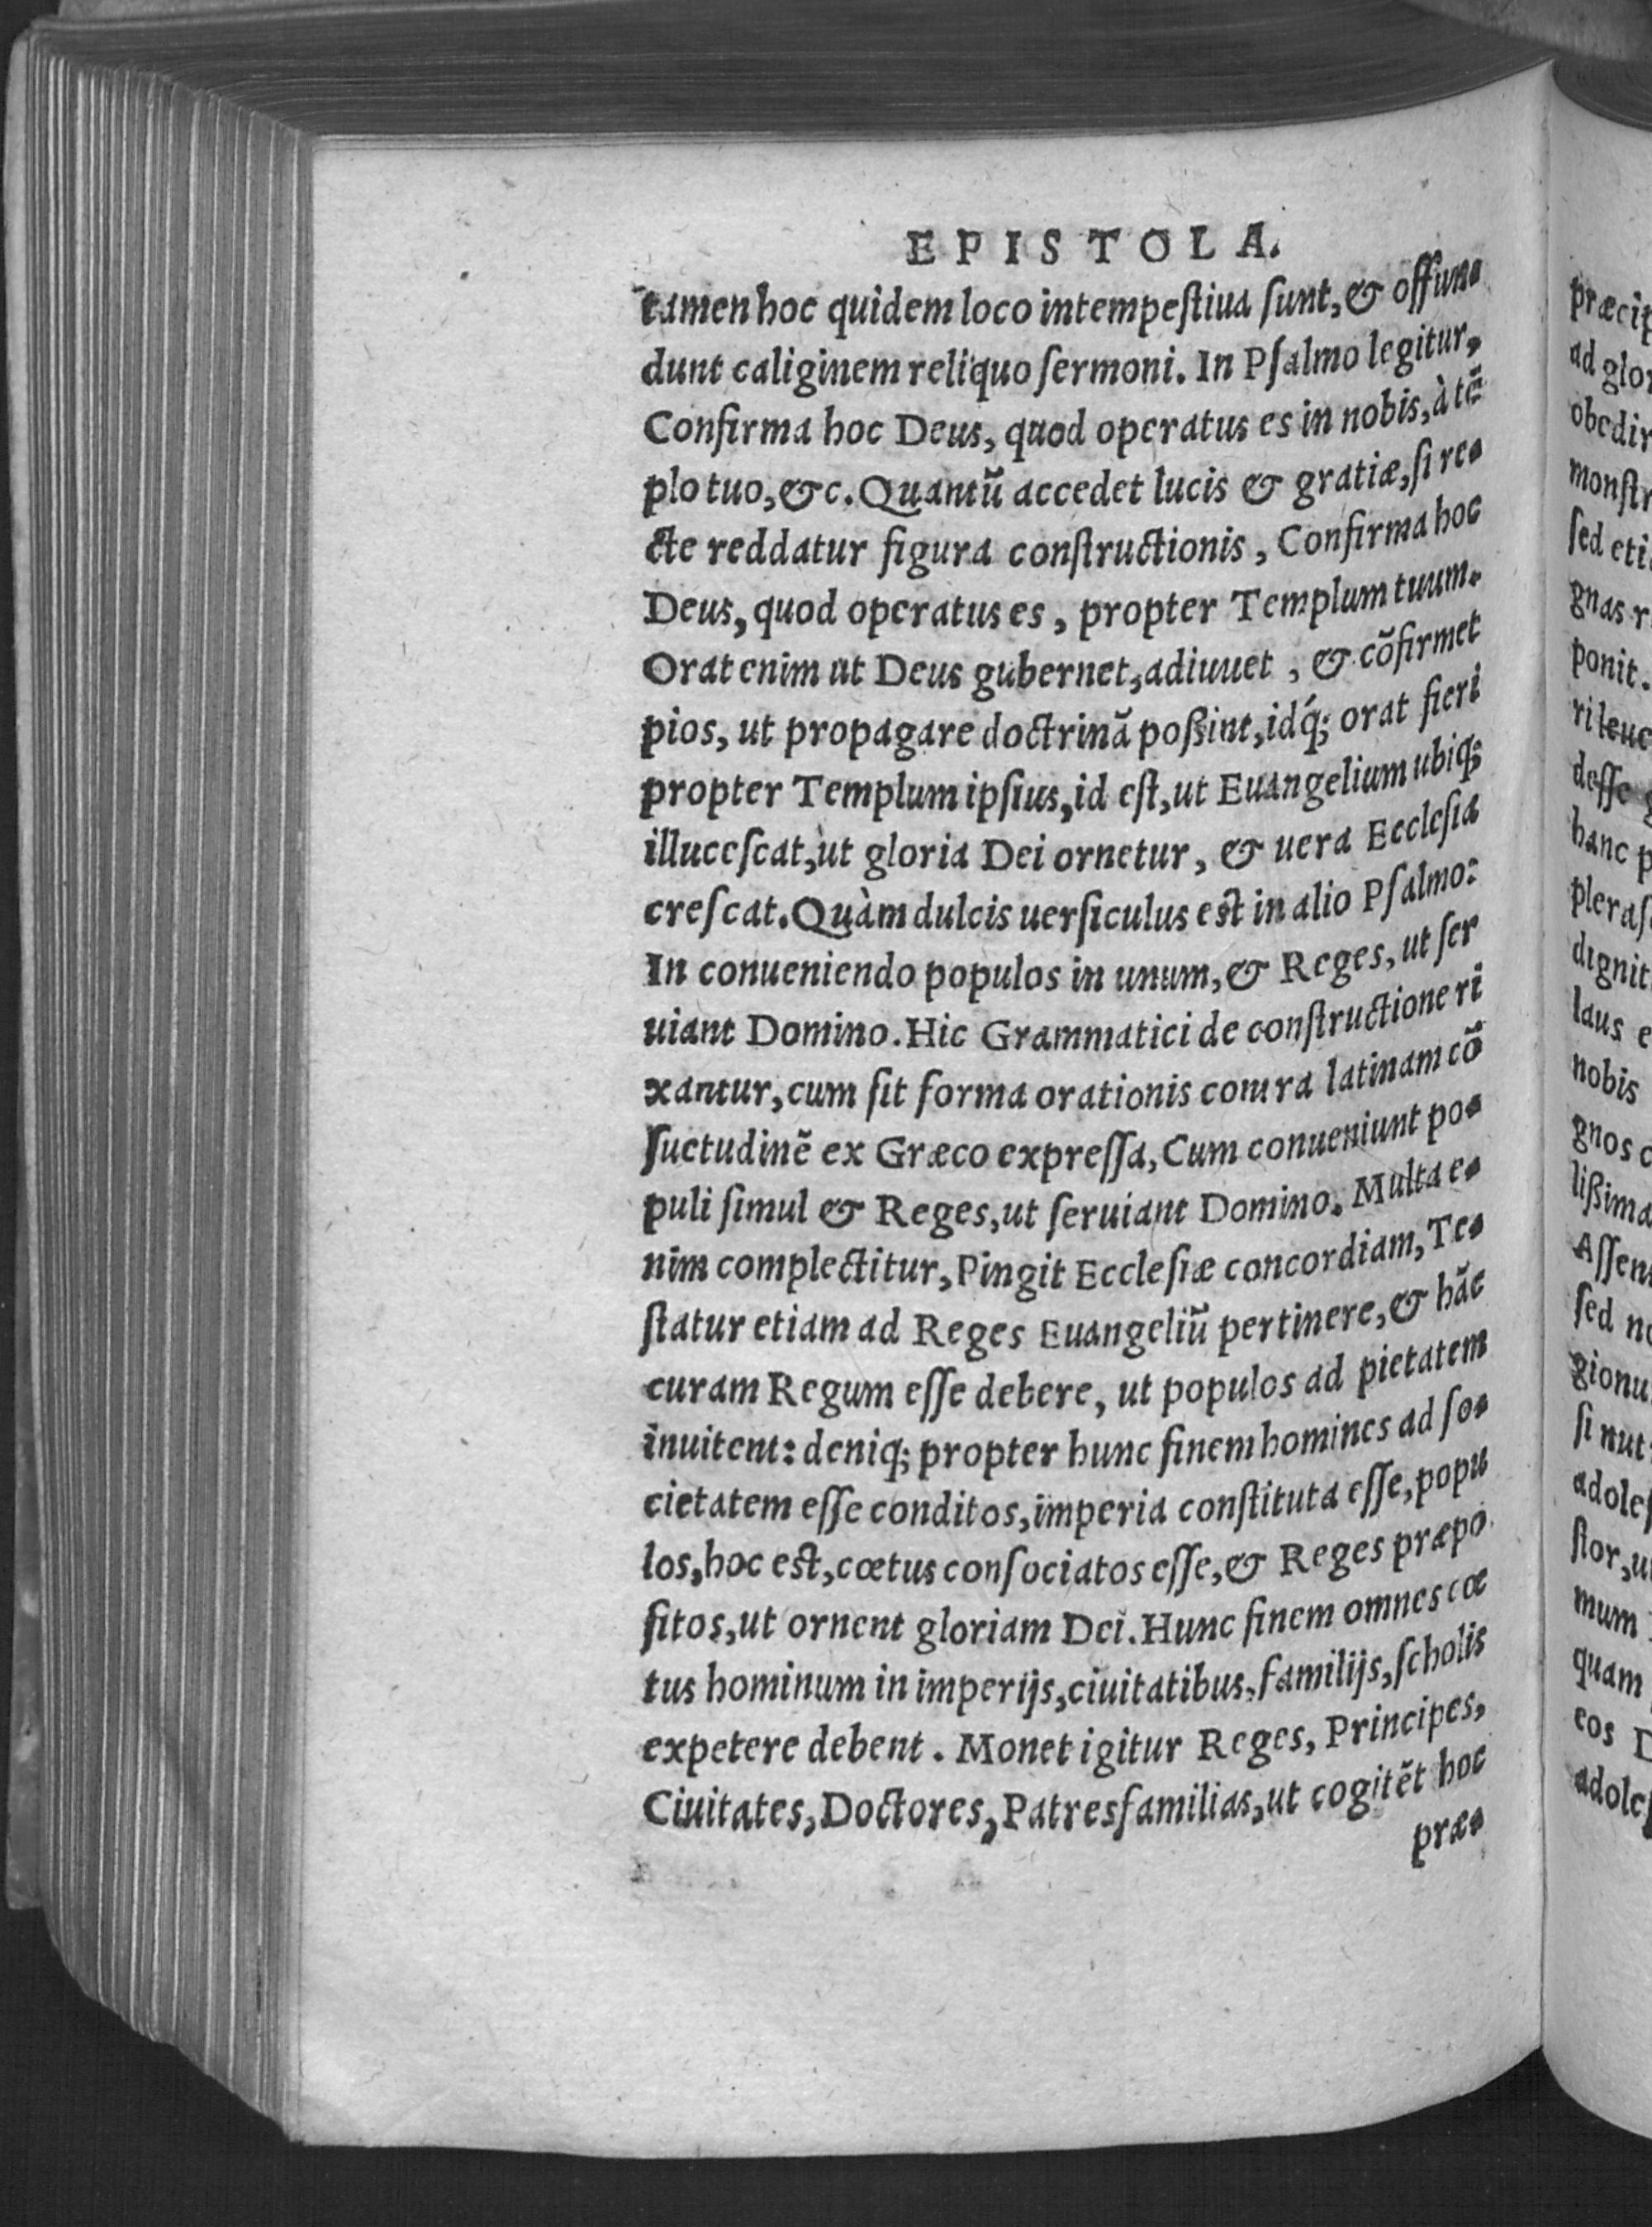 EPISTOLA.
tamen hoc quidem loco intempeſtiua ſunt, & offun-
dunt caliginem reliquo ſermoni. In Pſalmo legitur,
Confirma hoc Deus, quod operatus es in nobis, à tẽ
plo tuo, &c. Quantũ accedet lucis & gratiæ, ſi re-
cte reddatur figura conſtructionis, Confirma hoc
Deus, quod operatus es, propter Templum tuum.
Orat enim ut Deus gubernet, adiuuet, & cõfirmet
pios, ut propagare doctrinã poßint, idq́; orat fieri
propter Templum ipſius, id eſt, ut Euangelium ubiq;
illuceſcat, ut gloria Dei ornetur, & uera Eccleſia
creſcat. Quàm dulcis uerſiculus est in alio Pſalmo:
In conueniendo populos in unum, & Reges, ut ſer
uiant Domino. Hic Grammatici de conſtructione ri
xantur, cum ſit forma orationis contra latinam cõ
ſuetudinẽ ex Græco expreſſa, Cum conueniunt po-
puli ſimul & Reges, ut ſeruiant Domino. Multa e-
nim complectitur, Pingit Eccleſiæ concordiam, Te-
ſtatur etiam ad Reges Euangeliũ pertinere, & hãc
curam Regum eſſe debere, ut populos ad pietatem
inuitent: deniq; propter hunc finem homines ad ſo-
cietatem eſſe conditos, imperia conſtituta eſſe, popu
los, hoc est, cœtus conſociatos eſſe, & Reges præpo
ſitos, ut ornent gloriam Dei. Hunc finem omnes cœ
tus hominum in imperijs, ciuitatibus, familijs, ſcholis
expetere debent. Monet igitur Reges, Principes,
Ciuitates, Doctores, Patresfamilias, ut cogitẽt hoc
præ-
ad
obedir
monſtr
ſed
gnas
ponit.
hanc
laus
nobis
gnos
ſed
ſi nut
mum
quam
eos